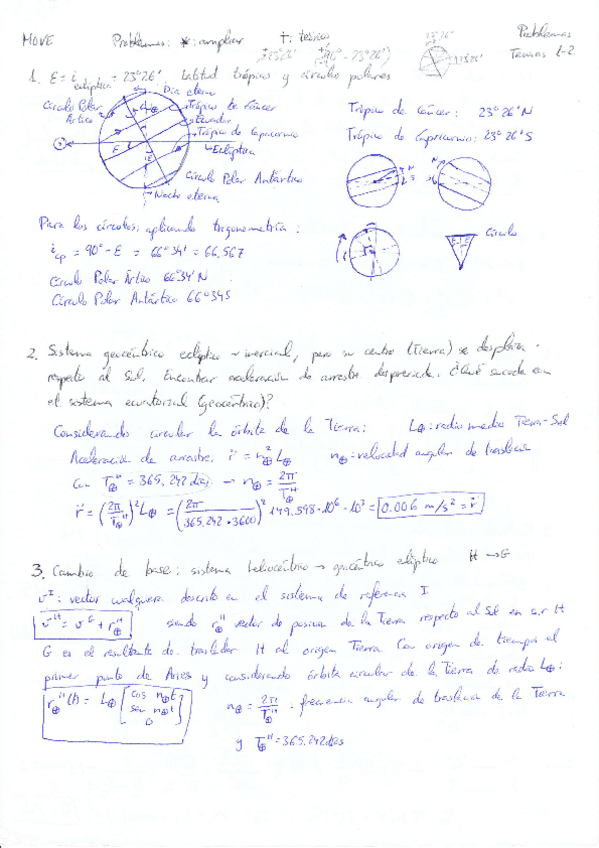 MOVE Problemas: *: ampliar †: teórico Problemas
Temas 1-2
1. E = i eclíptica = 23º26' Latitud trópicos y círculos polares
Día eterno
Círculo Polar Ártico
Trópico de Cáncer
Ecuador
Trópico de Capricornio
Eclíptica
Círculo Polar Antártico
Noche eterna
Trópico de Cáncer: 23º26'N
Trópico de Capricornio: 23º26'S
Círculo
Para los círculos, aplicando trigonometría:
i cp = 90º - E = 66º34' = 66.567
Círculo Polar Ártico 66º34'N
Círculo Polar Antártico 66º34S
2. Sistema geocéntrico eclíptico ~ inercial, pero su centro (Tierra) se desplaza
respecto al Sol. Encontrar aceleración de arrastre despreciada. ¿Qué sucede en
el sistema ecuatorial (geocéntrico)?
Considerando circular la órbita de la Tierra: L⊕: radio medio Tierra-Sol
Aceleración de arrastre: r̈ = n⊕² L⊕ n⊕: velocidad angular de traslación
Con T⊕ᴴ = 365.242 días → n⊕ = 2π/T⊕ᴴ
r̈ = (2π/T⊕ᴴ)² L⊕ = (2π/365.242·3600)² 149.598·10⁶·10³ = 0.006 m/s² = r̈
3. Cambio de base: sistema heliocéntrico → geocéntrico eclíptico H → G
vᴵ: vector cualquiera descrito en el sistema de referencia I
vᴴ = vᴳ + r⊕ᴴ siendo r⊕ᴴ vector de posición de la Tierra respecto al Sol en s.r H
G es el resultante de trasladar H al origen Tierra. Con origen de tiempo al
primer punto de Aries y considerando órbita circular de la Tierra de radio L⊕:
r⊕ᴴ(t) = L⊕ [cos n⊕t sen n⊕t 0] n⊕ = 2π/T⊕ᴴ : frecuencia angular de traslación de la Tierra
y T⊕ᴴ = 365.242 días